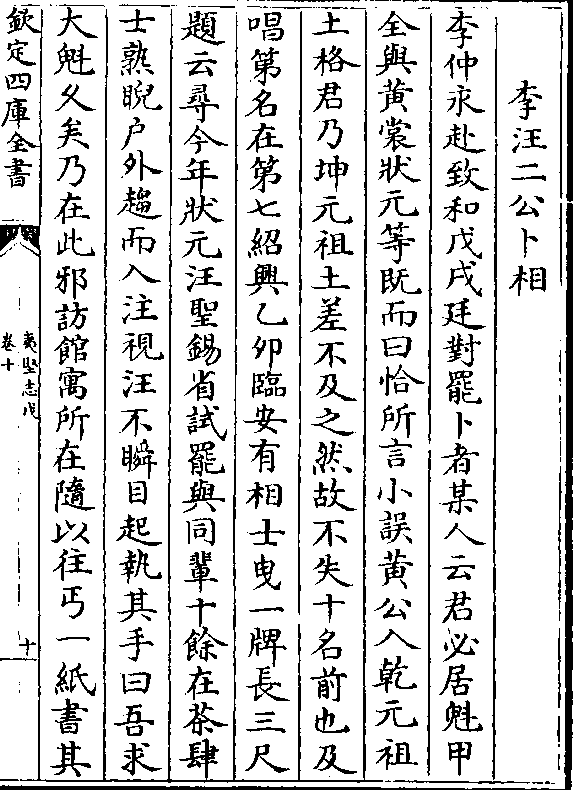 李汪二公卜相
李仲永赴致和戊戌廷對罷卜者某人云君必居魁甲
全與黃裳狀元等既而曰恰所言小誤黃公入乾元祖
土格君乃坤元祖土差不及之然故不失十名前也及
唱第名在第七紹興乙夘臨安有相士曵一牌長三尺
題云尋今年狀元汪聖錫省試罷與同輩十餘在茶肆
士熟睨户外趨而入注視汪不瞬目起執其手曰吾求
大魁久矣乃在此邪訪館寓所在隨以往丐一紙書其
欽定四庫全書
夷堅志戊
卷十
十